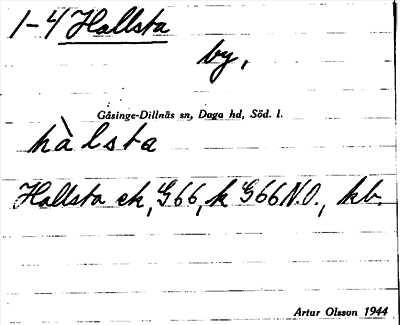 1-4 Hallsta
by,
Gåsinge-Dillnäs sn, Daga hd, Söd. l.
hàlsta
Hallsta ek, G66, k G66 N.O., kb.
Artur Olsson 1944